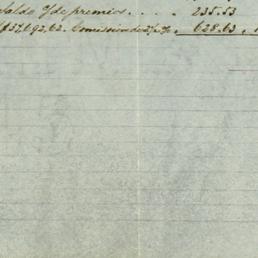 Saldo 1/ de premios . . . . 235.53
$37,692,62. Comission de 2½% . 628.63